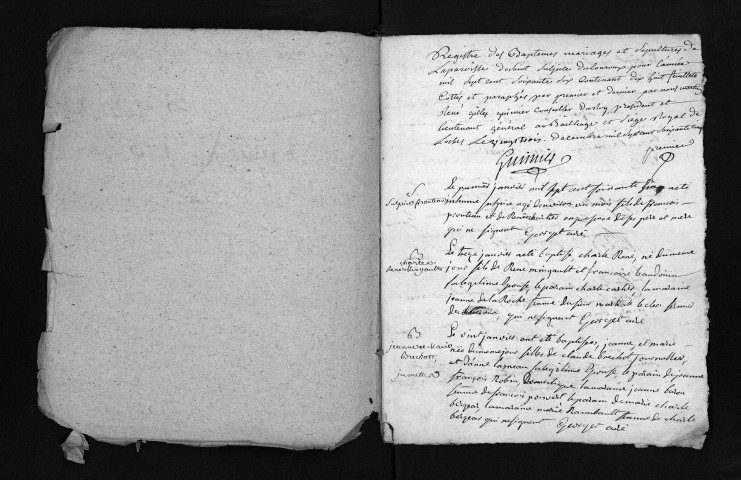 Registre des Baptemes mariages et sepultures de
La paroisse de Saint Sulpice du Louroux pour l'année
mil sept cent soixante six contenant dix huit feuillets
Cottés et paraphés par premier et dernier par nous
René Gilles quimier Conseiller du roy president et
lieutenant général au Bailliage et siege Royal de
Loches Le vingt trois decembre mil sept cent soixante cinq
Quimier
premier
S
Sulpice pronteau
Le premier janvier mil sept cent soixante six a eté
inhumé sulpice agé d'environ un mois fils de francois
pronteau et de Renée en presence de ses pere et mere
qui ne signent Georget curé
B
charle
René mingault
Le treze janvier a eté baptisé charle René, né du meme
jour fils de René mingault et francoise baudouin
sa legitime Epouse le parain charle la maraine
jeanne de la Roche femme du sieur le clerc
qui ne signent Georget curé
B
jeanne et Marie
brechot
jumelles
Le vint janvier ont eté baptisées jeanne et marie
nées du meme jour filles de claude brechot journallier
et d'anne sa legitime Epouse le parain de jeanne
françois Robin domestique la maraine jeanne baron
femme de francois le parain de marie charle
bergear la maraine marie Raimbault femme de charle
bergear qui ne signent Georget curé